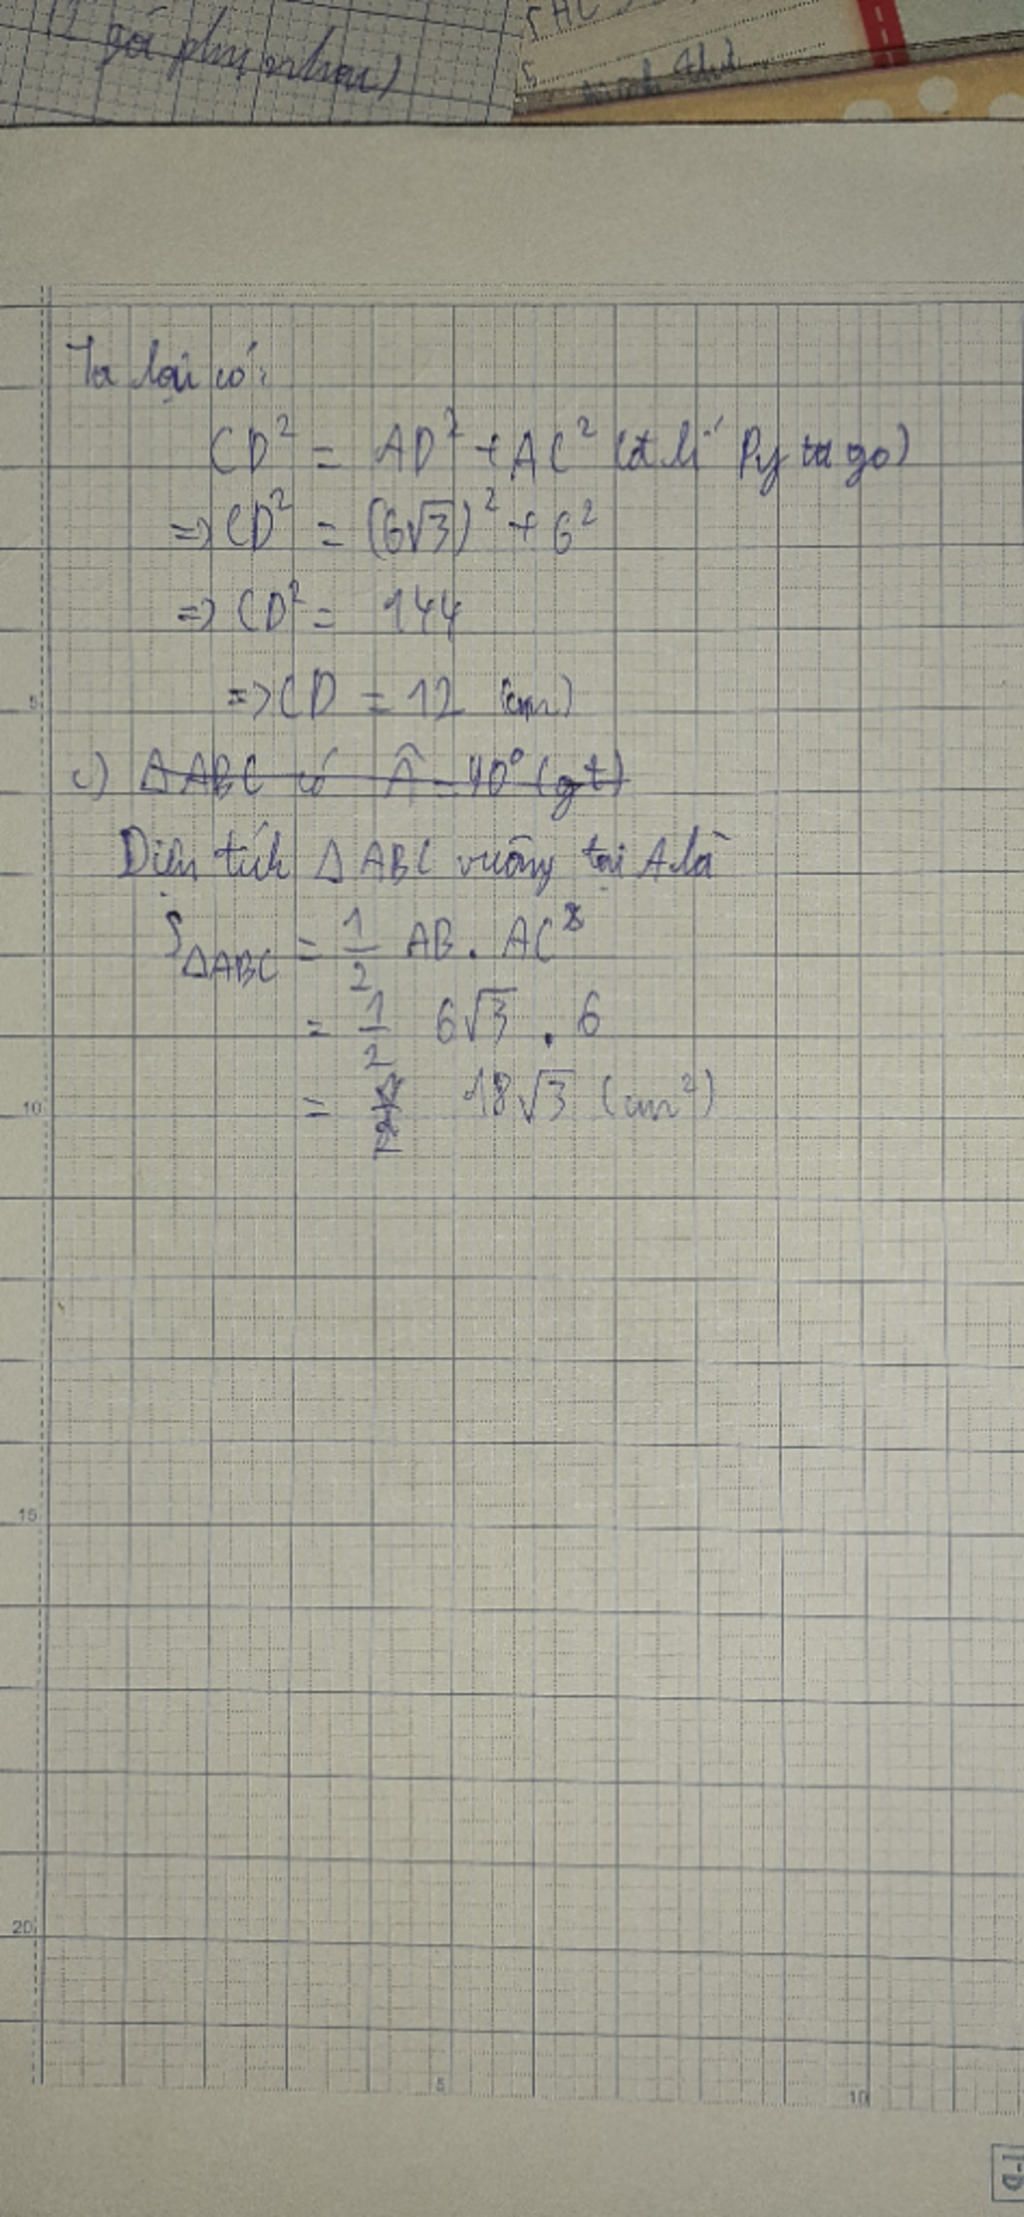 góc phụ nhau)
SAC
Ta lại có:
CD² = AD² + AC² (đ lí Py ta go)
=> CD² = (6√3)² + 6²
=> CD² = 144
=> CD = 12 (cm)
c) ΔABC có Â = 90° (gt)
Diện tích Δ ABC vuông tại A là
S ΔABC = 1/2 AB . AC
= 1/2 6√3 . 6
= 18√3 (cm²)
5
10
15
20
5
10